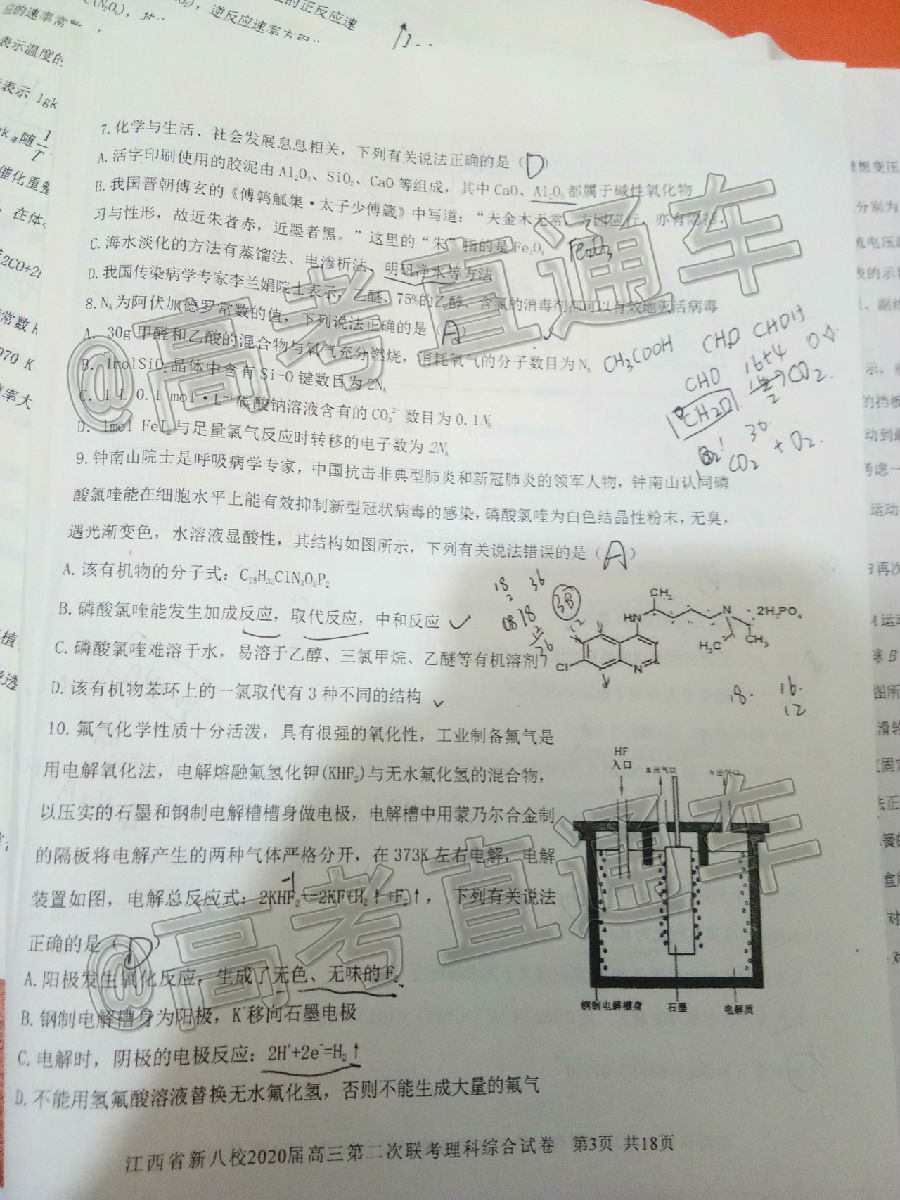 (N₂O₅)，逆反应速率方程
的正反应速
应的速率常
表示温度的
表示 lgk
随
催化重整
常数
970 K
速率大
7.化学与生活、社会发展息息相关，下列有关说法正确的是（D）
A.活字印刷使用的胶泥由Al₂O₃、SiO₂、CaO等组成，其中CaO、Al₂O₃都属于碱性氧化物
B.我国晋朝傅玄的《傅鹑觚集·太子少傅箴》中写道：“夫金木无常，方圆应行，亦有隐括，
习与性形，故近朱者赤，近墨者黑。”这里的“朱”指的是Fe₃O₄
Fe₂O₃
C.海水淡化的方法有蒸馏法、电渗析法、明矾净水等方法
D.我国传染病学专家李兰娟院士表示，乙醚、75%的乙醇、含氯的消毒剂都可以有效地灭活病毒
8.Nₐ为阿伏加德罗常数的值，下列说法正确的是（A）
A. 30g甲醛和乙酸的混合物与氧气充分燃烧，消耗氧气的分子数目为Nₐ
B. 1molSiO₂晶体中含有Si-O键数目为2Nₐ
C. 1 L 0.1 mol·L⁻¹碳酸钠溶液含有的CO₃²⁻数目为0.1Nₐ
D. 1mol FeI₂与足量氯气反应时转移的电子数为 2Nₐ
CH₃COOH CHO CHOH
CHO 16+4
CH₂O CO₂
30
CO₂ + O₂
9.钟南山院士是呼吸病学专家，中国抗击非典型肺炎和新冠肺炎的领军人物，钟南山认同磷
酸氯喹能在细胞水平上能有效抑制新型冠状病毒的感染，磷酸氯喹为白色结晶性粉末，无臭，
遇光渐变色，水溶液显酸性，其结构如图所示，下列有关说法错误的是（A）
A. 该有机物的分子式：C₁₈H₃₀ClN₃O₈P₂
B. 磷酸氯喹能发生加成反应，取代反应，中和反应 ✓
C. 磷酸氯喹难溶于水，易溶于乙醇、三氯甲烷、乙醚等有机溶剂
D. 该有机物苯环上的一氯取代有3种不同的结构 ✓
18 36
18
26
HN CH₃ N · 2H₃PO₄
H₃C CH₃
Cl N
18. 16.
12
10. 氟气化学性质十分活泼，具有很强的氧化性，工业制备氟气是
用电解氧化法，电解熔融氟氢化钾(KHF₂)与无水氟化氢的混合物，
以压实的石墨和钢制电解槽槽身做电极，电解槽中用蒙乃尔合金制
的隔板将电解产生的两种气体严格分开，在373K左右电解，电解
装置如图，电解总反应式：2KHF₂=2KF+H₂↑+F₂↑，下列有关说法
正确的是（D）
A.阳极发生氧化反应，生成了无色、无味的F₂
B.钢制电解槽身为阳极，K⁺移向石墨电极
C.电解时，阴极的电极反应：2H⁺+2e⁻=H₂↑
D.不能用氢氟酸溶液替换无水氟化氢，否则不能生成大量的氟气
HF
入口
出气口
出气口
钢制电解槽身 石墨 电解质
江西省新八校2020届高三第二次联考理科综合试卷 第3页 共18页
@高考直通车
@高考直通车